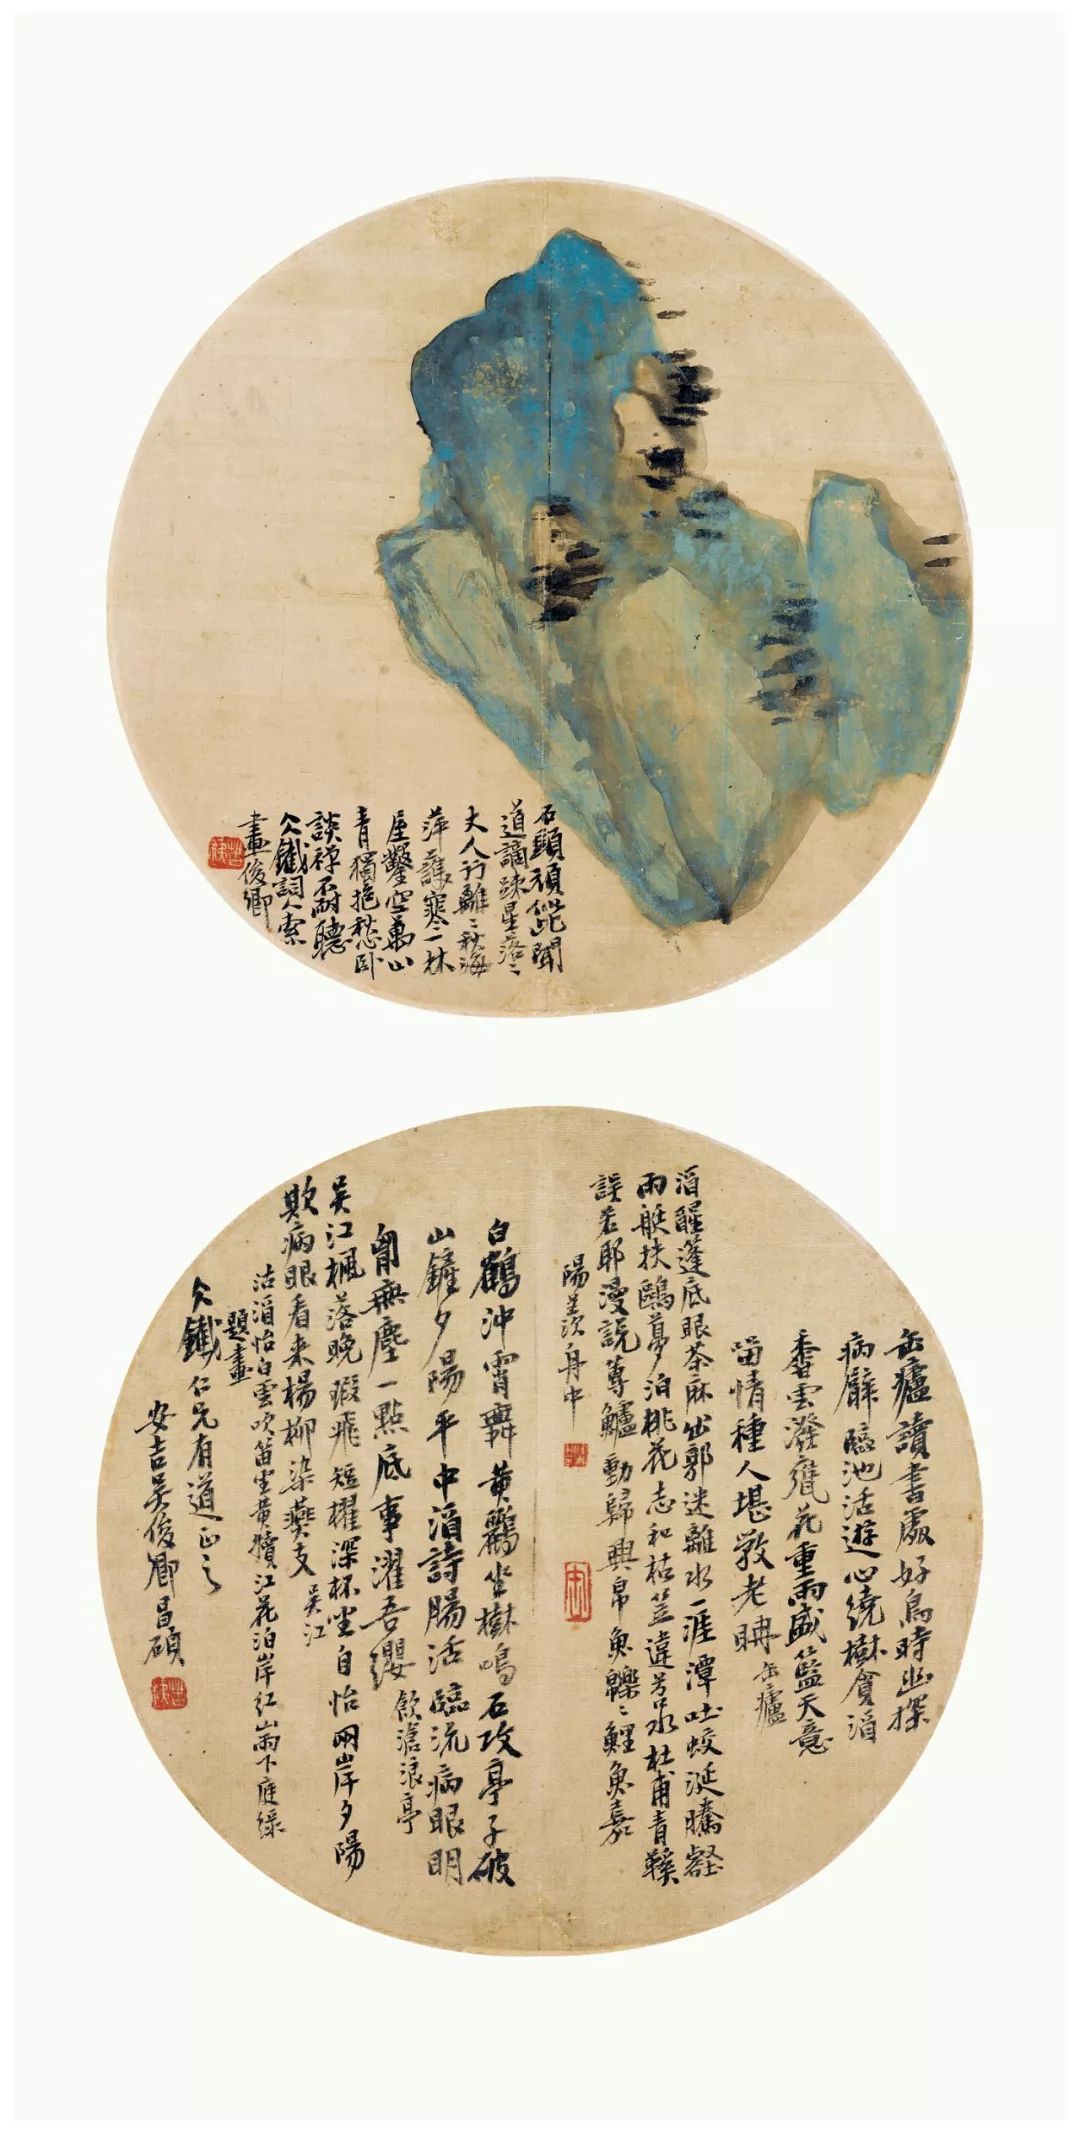 石頭頑能聞
道謫疎星落〻
丈人行離〻秋海
萍護寒一林
屋鑿空萬山
青獨抱愁卧
談禪不耐聽
仌鐵詞人索
畫俊卿
缶廬讀書處好鳥時幽探
病癖臨池活遊心繞樹貪酒
香雲潑甕花重雨盛籃天意
留情種人堪敩老聃 缶廬
酒醒蓬底眼茶麻出郭迷離水一涯潭吐蛟涎騰壑
雨艇扶鷗夢泊桃花志和枯笠違苕水杜甫青鞵
誤若耶漫説蓴鱸動歸興帛魚鱳〻鯉魚嘉
陽羨舟中
白鶴沖霄舞黄鸝坐樹鳴石攻亭子破
山鏟夕陽平中酒詩腸活臨流病眼明
胷無塵一點底事濯吾纓 飲滄浪亭
吴江楓落晚飛短櫂深杯坐自怡兩岸夕陽
欺病眼看来楊柳染燕支 吴江
沽酒怡白雲吹笛坐黄犢江花泊岸紅下庭緑
題畫
仌鐵仁兄有道正之
安吉吴俊卿昌碩